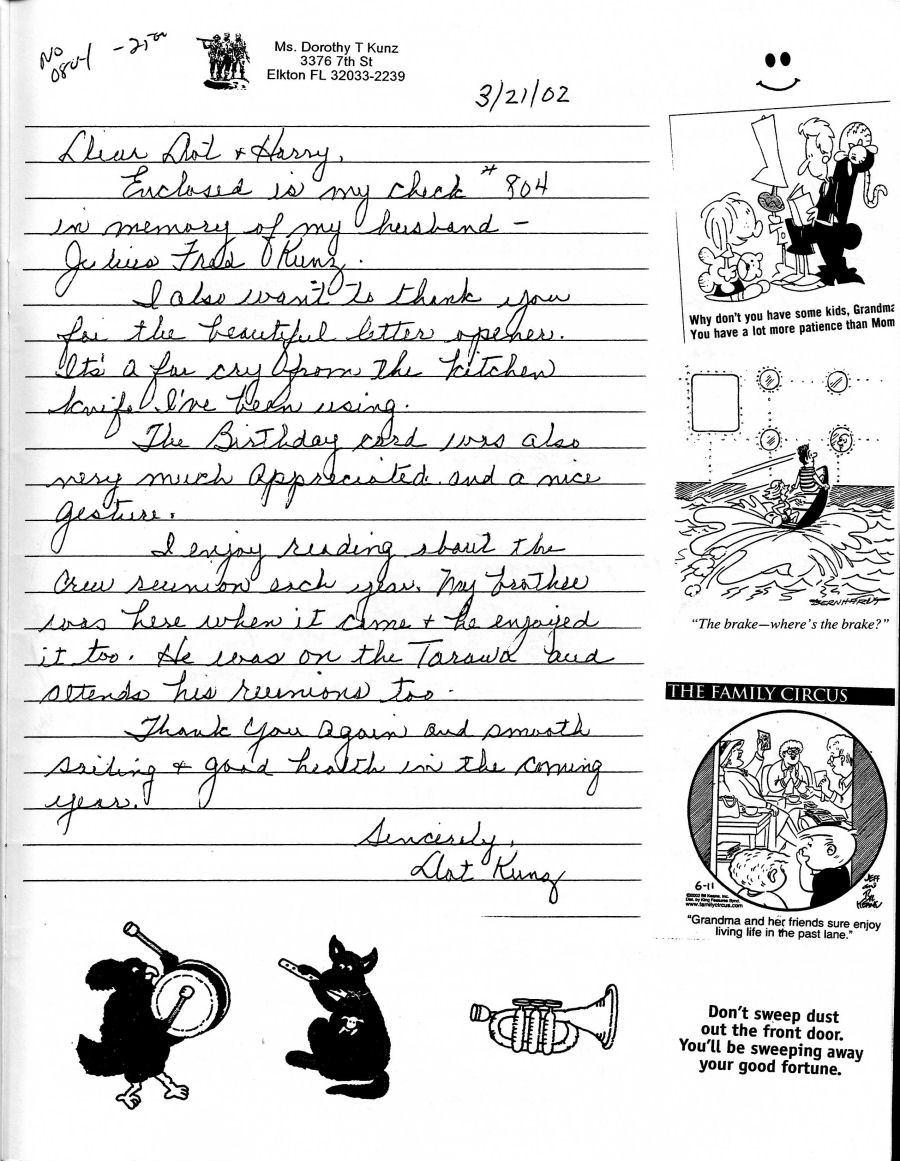 No
0804 - 25.00
Ms. Dorothy T Kunz
3376 7th St
Elkton FL 32033-2239
3/21/02
Dear Dot & Harry,
Enclosed is my check # 804
in memory of my husband -
Julius Fred Kunz.
I also want to thank you
for the beautiful letter opener.
It's a far cry from the kitchen
knife I've been using.
The Birthday card was also
very much appreciated. and a nice
gesture.
I enjoy reading about the
Crew reunion each year. My brother
was here when it came & he enjoyed
it too. He was on the Tarawa and
attends his reunions too.
Thank You Again and smooth
sailing & good health in the coming
year.
Sincerely,
Dot Kunz
Why don't you have some kids, Grandma
You have a lot more patience than Mom
BERNHARDT
"The brake—where's the brake?"
THE FAMILY CIRCUS
6-11
©2002 Bil Keane, Inc.
Dist. by King Features Synd.
www.familycircus.com
JEFF
and
BIL
KEANE
"Grandma and her friends sure enjoy
living life in the past lane."
Don't sweep dust
out the front door.
You'll be sweeping away
your good fortune.